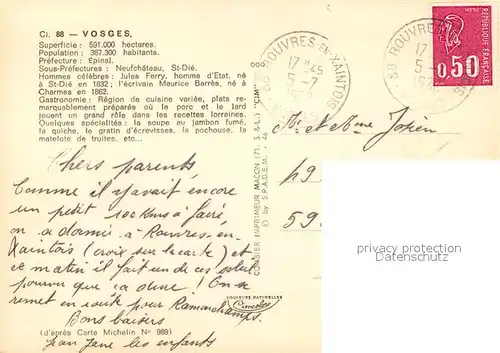 Cl. 88 — VOSGES.
Superficie : 591.000 hectares.
Population : 387.300 habitants.
Préfecture : Epinal.
Sous-Préfectures : Neufchâteau, St-Dié.
Hommes célèbres : Jules Ferry, homme d'Etat, né
à St-Dié en 1832 ; l'écrivain Maurice Barrès, né à
Charmes en 1862.
Gastronomie : Région de cuisine variée, plats re-
marquablement préparés où le porc et le lard
jouent un grand rôle dans les recettes lorraines.
Quelques spécialités : la soupe au jambon fumé,
la quiche, le gratin d'écrevisses, la pochouse, la
matelote de truites, etc...
Chers parents,
Comme il y avait encore
un petit 100 Kms à faire,
on a dormi à Rouvres-en-
Xaintois (croix sur la carte) et
ce matin il fait un de ces soleil
pourvu que ça dure ! On se
remet en route pour Ramonchamps.
Bons baisers
(d'après Carte Michelin N° 989)
les enfants
COMBIER IMPRIMEUR MACON (71. S.&L.) "CIM"
© by S.P.A.D.E.M.
COULEURS NATURELLES
Cimcolor
88 ROUVRES-EN-XAINTOIS
17 H 45
5-7
88 ROUVRES
17
5-
0,50
REPUBLIQUE FRANÇAISE
Mr et Mme Josien
49
59
privacy protection
Datenschutz